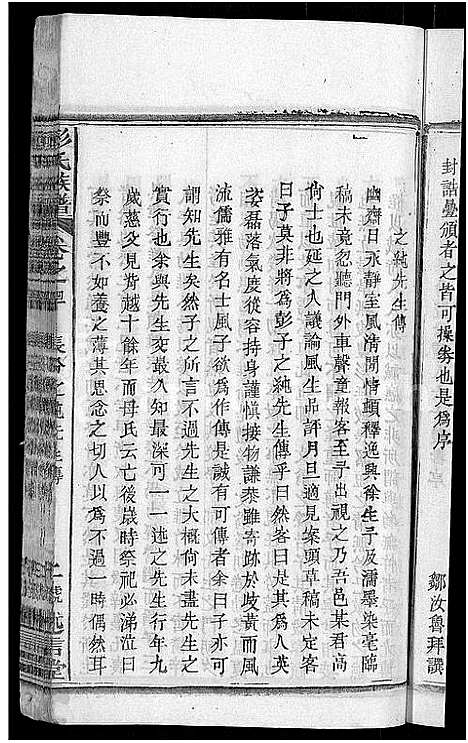 封誥疊頒者之皆可操券也是為序
鄒汝魯拜譔
之純先生傳
幽齋日永靜室風清閒情顯釋逸興徐生予及濡墨染毫臨
稿未竟忽聽門外車聲童報客至予出視之乃吾邑某君高
尙士也延之入議論風生品評月旦適見案頭草稿未竟客
曰子莫非將為彭子之純先生傳乎曰然客曰是其為人英
姿磊落氣度從容持身謹慎接物謙泰雖寄跡於歧黃而風
流儒雅有名士風子欲為作傳是誠有可傳者余曰子亦可
謂知先生矣然子之所言不過先生之大概尙未盡先生之
實行也余與先生交最久知最深可一一述之先生行年九
歲慈父見背越十餘年而母氏云亡後歲時祭祀必涕泣曰
祭而豐不如養之薄其思念之切人以為不過一時偶然耳
彭氏族譜
卷之二